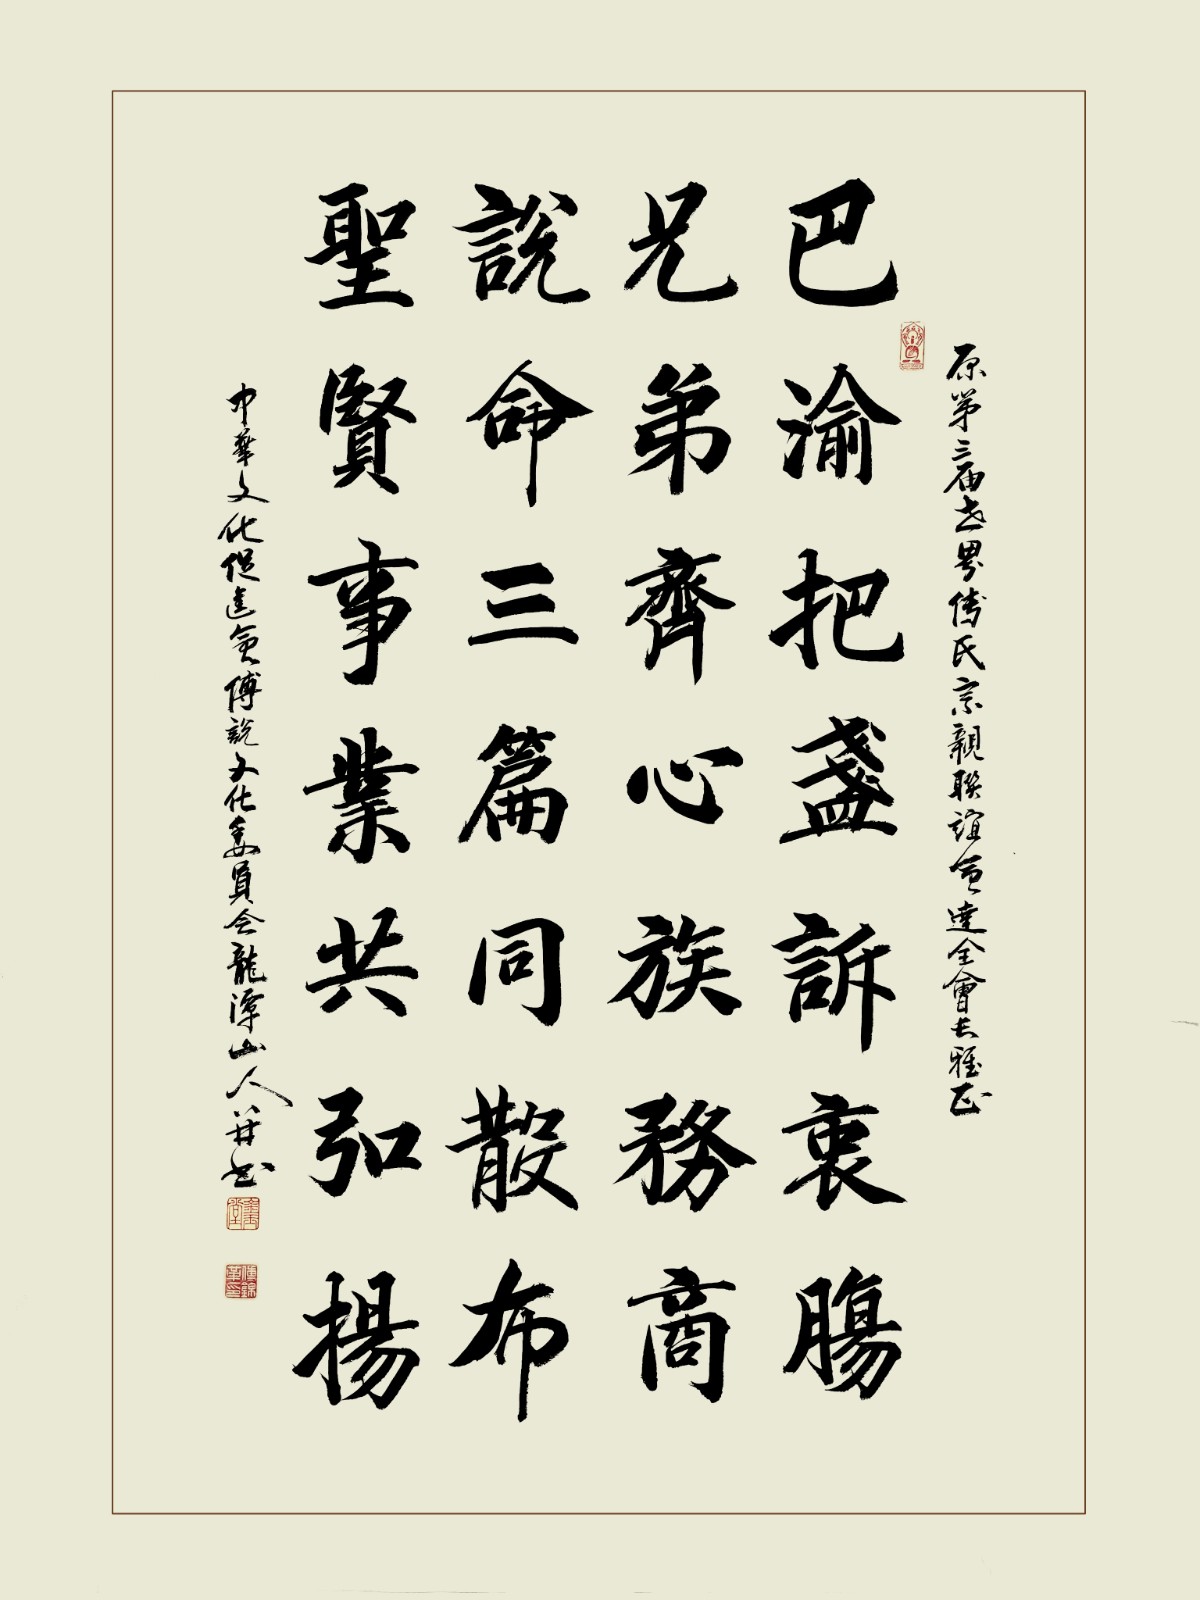 原第三届世界傅氏宗親聯誼會達全會長雅正
巴渝把盞訴衷腸
兄弟齊心族務商
說命三篇同散布
聖賢事業共弘揚
中華文化促進會傅說文化委員会龍潭山人并书